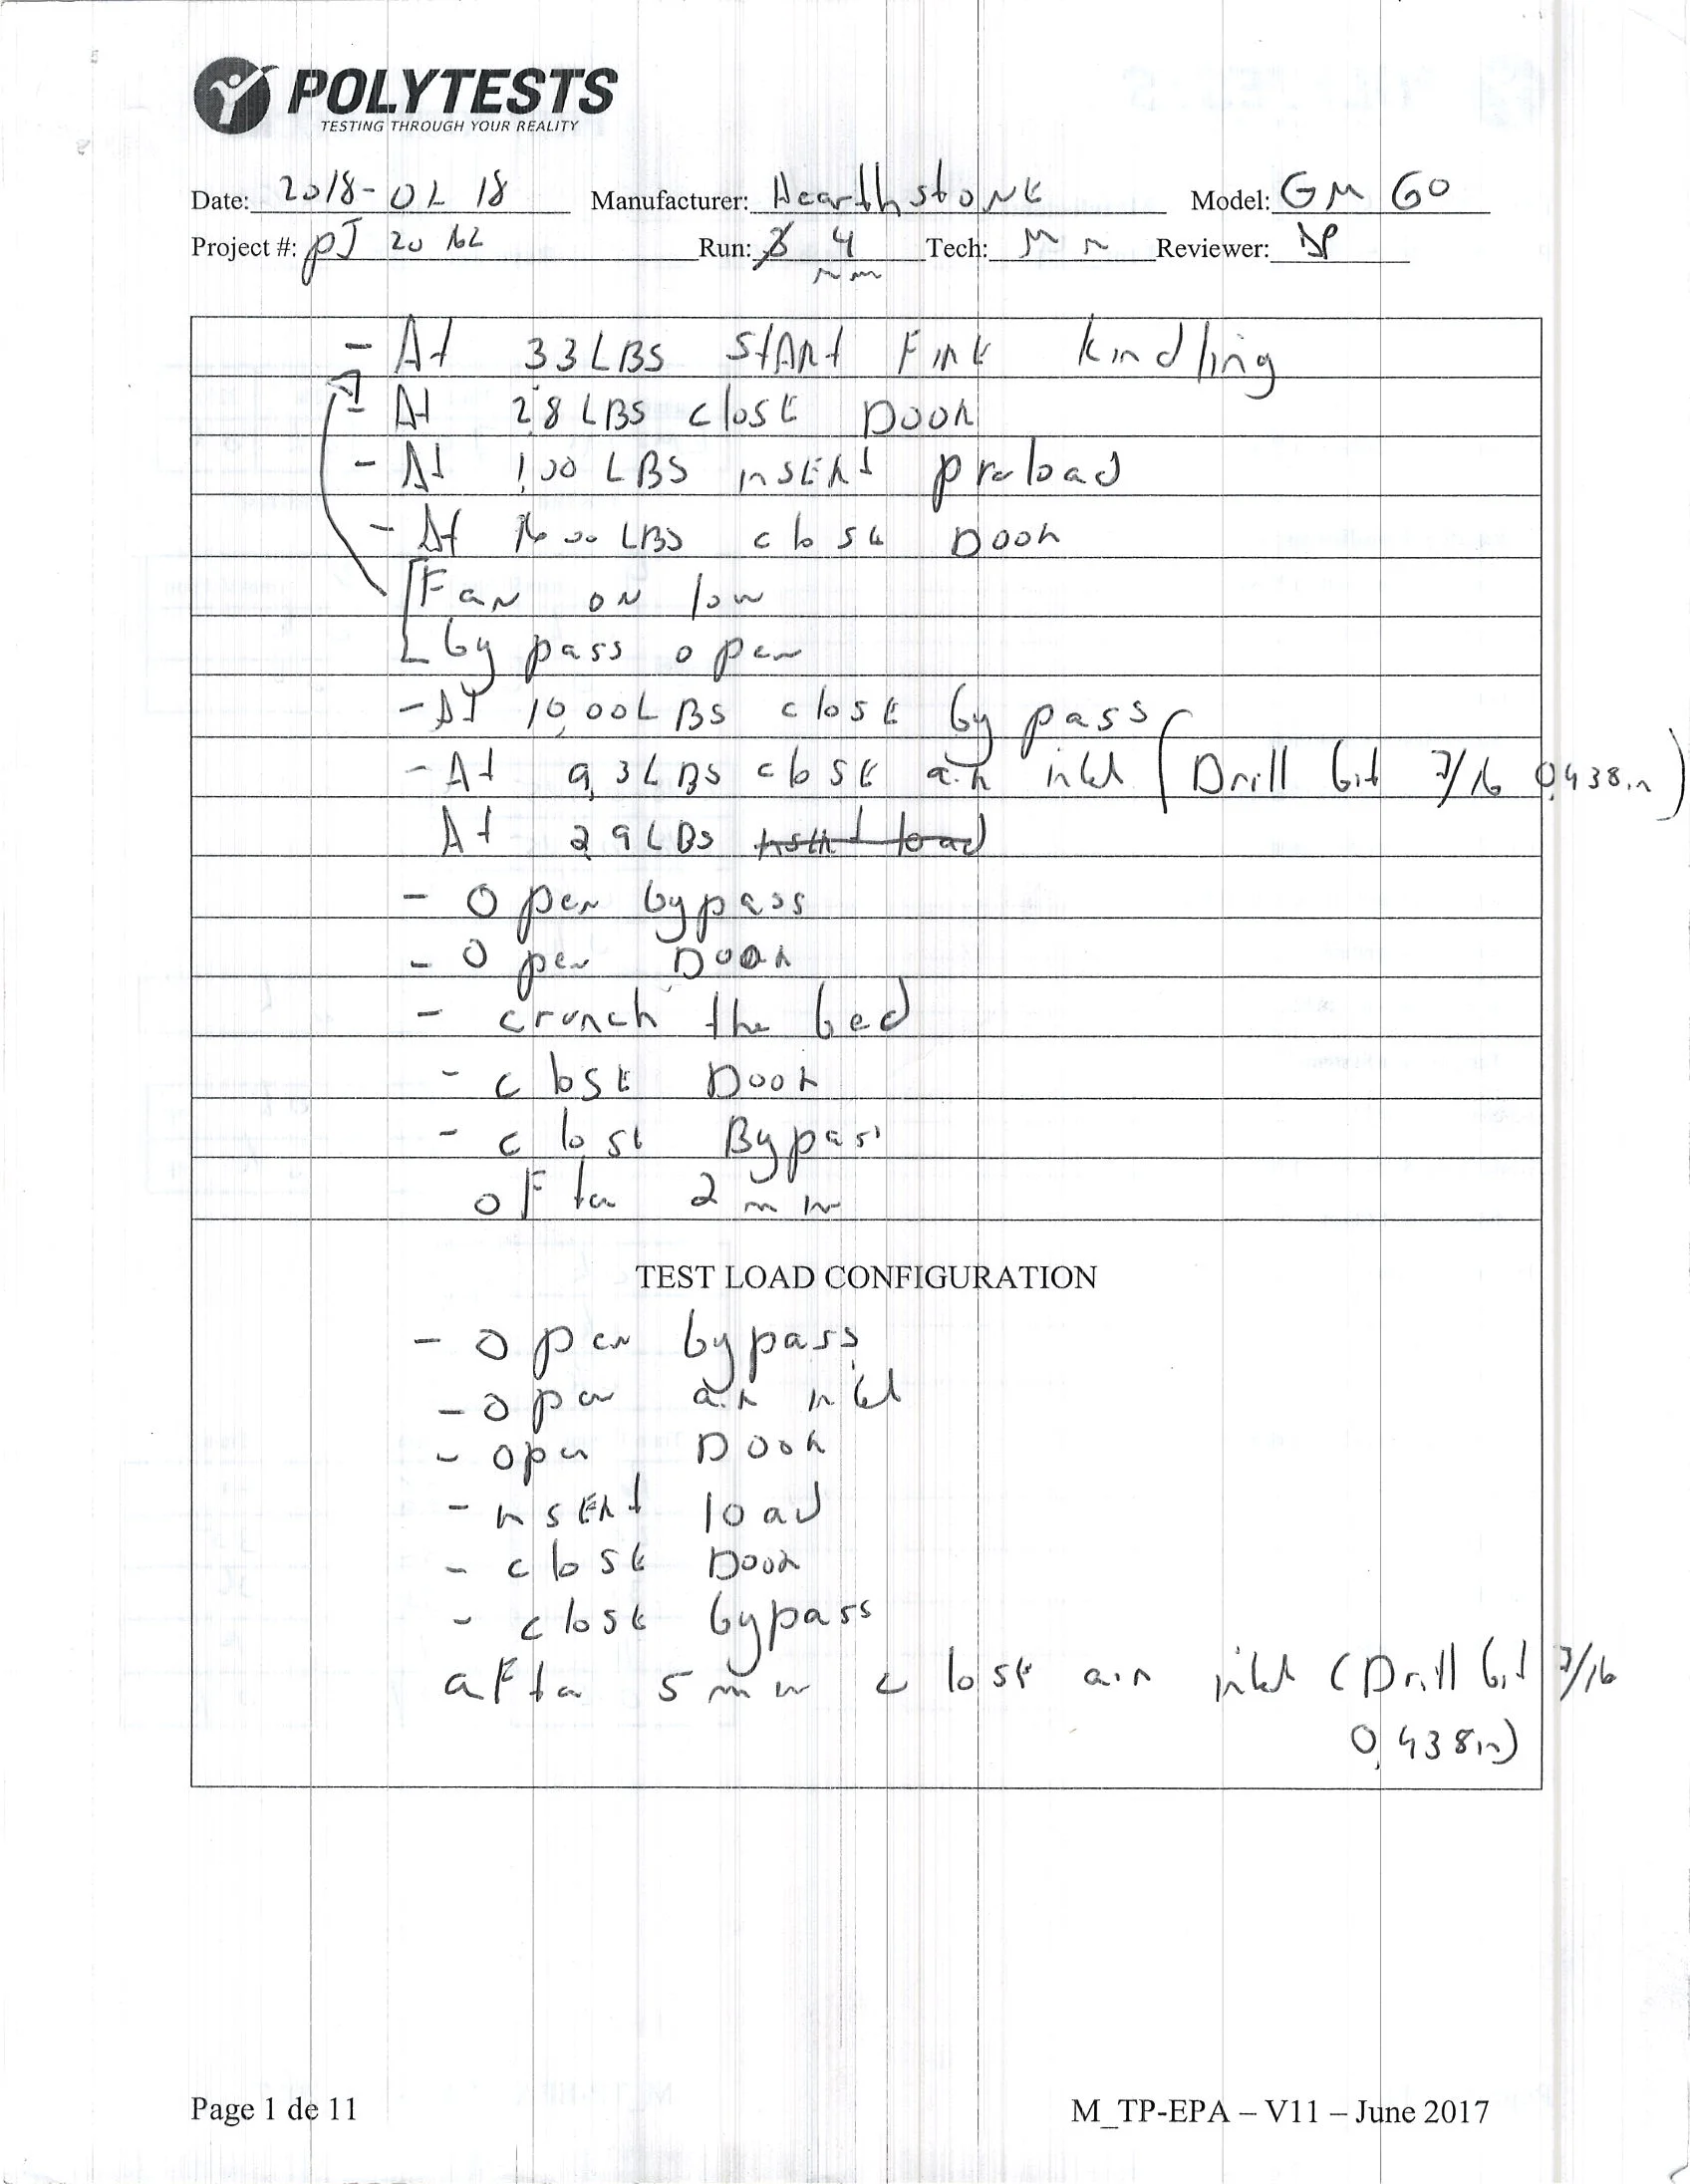 POLYTESTS
TESTING THROUGH YOUR REALITY
Date: 2018-02 18 Manufacturer: HearthstonE Model: GM 60
Project #: PJ 20162 Run: 4 Tech: Reviewer:
- At 33LBS StARt FirE kindling
- At 2,8 LBS closE Door
- At 1,00 LBS insERt preload
- At LBS closE Door
Fan on low
by pass open
- At 10,00LBS closE by pass
- At 9,3LBS closE air inlet (Drill bit 7/16 0,438in)
At 2,9LBS insert load
- Open bypass
- Open Door
- crunch the bed
- closE Door
- closE Bypass
after 2 min
TEST LOAD CONFIGURATION
- Open bypass
- Open air inlet
- Open Door
- insERt load
- closE Door
- closE bypass
after 5 min closE air inlet (Drill bit 7/16
0,438in)
Page 1 de 11 M_TP-EPA – V11 – June 2017